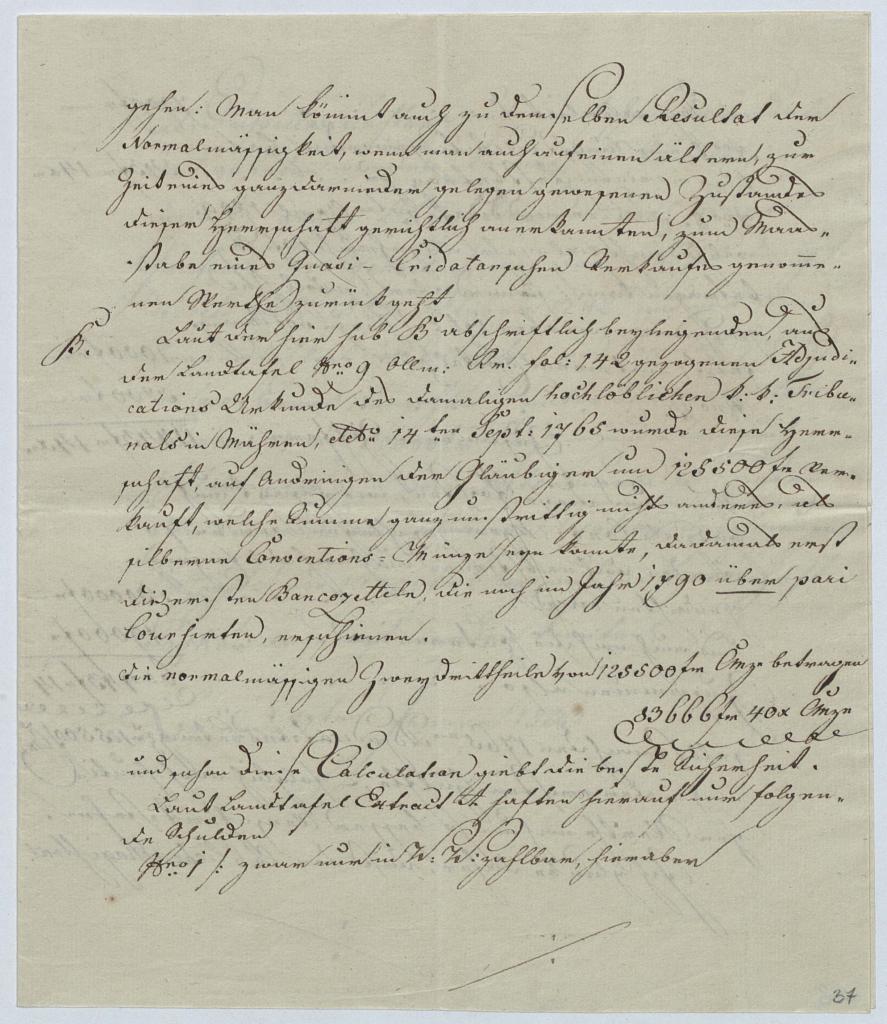 gehen: Man kömmt auch zu demselben Resultat der
Normalmässigkeit, wenn man auch auf einen ältern, zur
Zeit eines ganz darnieder gelegen gewesenen Zustandes
dieser Herrschaft gerichtlich anerkannten, zum Maas-
stabe eines Quasi-Cridatarischen Verkaufes genomme-
nen Werthe zurückgeht
B. Laut der hier sub B abschriftlich beyliegenden, aus
der Landtafel Nro 9 Ollm: Kr. fol: 142 gezogenen Adjudi-
cations Urkunde des damaligen hochlöblichen k: k: Tribu-
nals in Mähren, ddto 14ten Sept: 1765 wurde diese Herr-
schaft, auf Andringen der Gläubiger um 125500 fr ver-
kauft, welche Summe ganz unstrittig nichts anderes, als
silberne Conventions-Münze seyn konnte, da damals erst
die ersten Bancozetteln, die noch im Jahr 1790 über pari
coursirten, erschienen.
Die normalmässigen Zweydrittheile von 125500 fr CMze betragen
83666 fr 40 x CMze
und schon diese Calculation giebt die beste Sicherheit.
Laut Landtafel Extract A haften hierauf nur folgen-
de Schulden
Nro 1 /: zwar nur in W: W: zahlbar, hier aber
./.
37